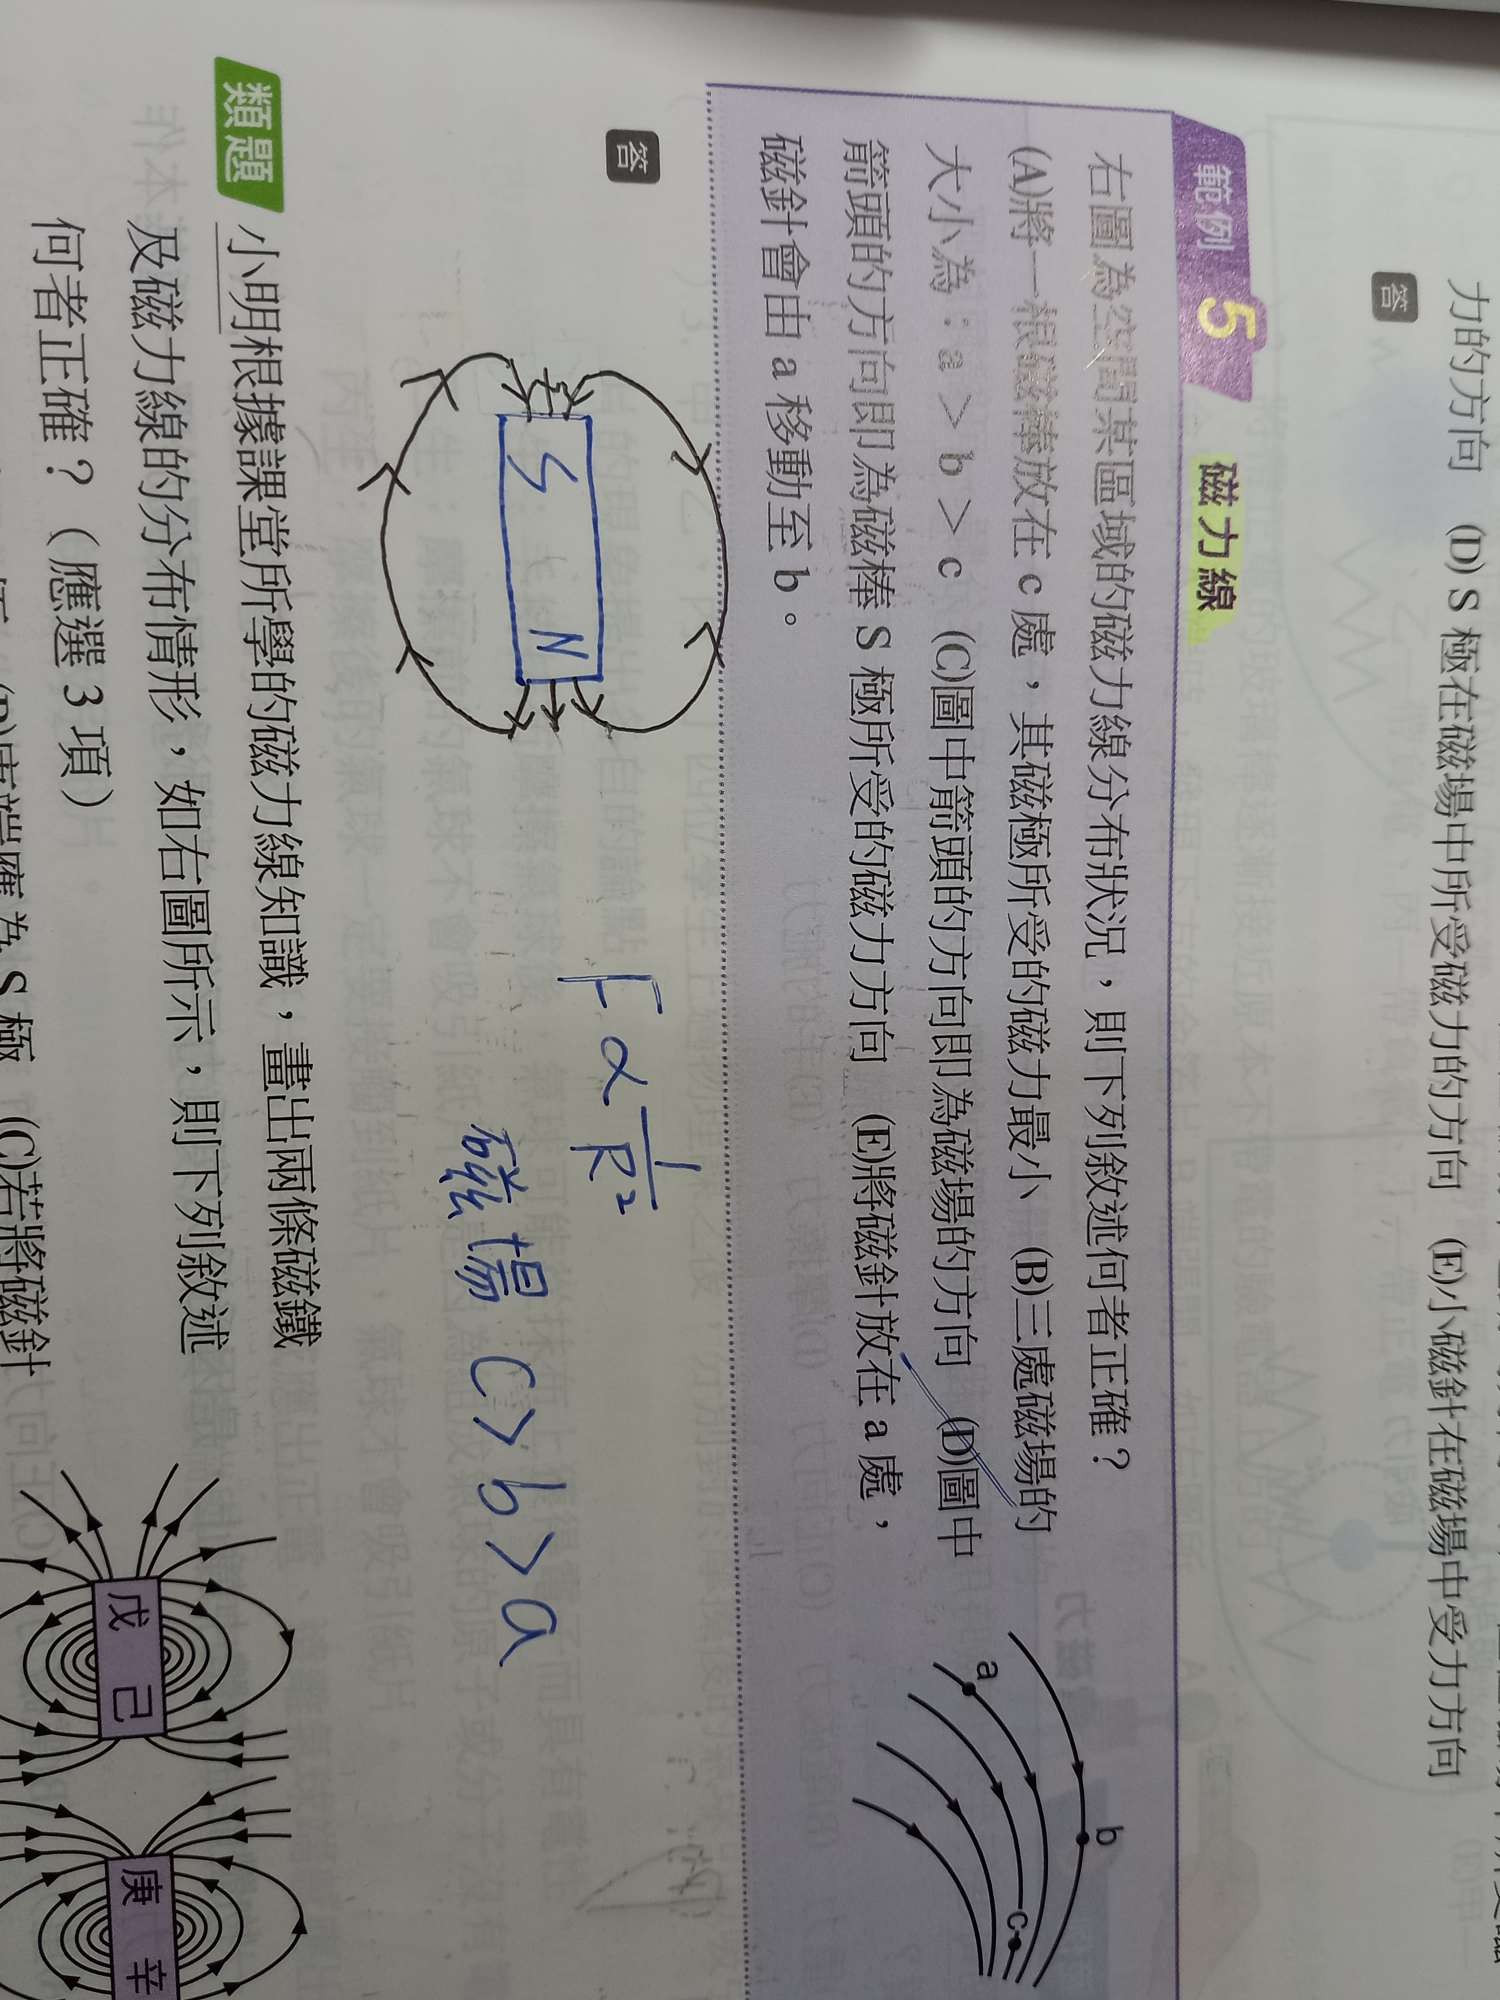 力的方向　(D) S 極在磁場中所受磁力的方向　(E)小磁針在磁場中受力方向
答
範例 5 磁力線
右圖為空間某區域的磁力線分布狀況，則下列敘述何者正確？
(A)將一根磁棒放在 c 處，其磁極所受的磁力最小　(B)三處磁場的
大小為：a＞b＞c　(C)圖中箭頭的方向即為磁場的方向　(D)圖中
箭頭的方向即為磁棒 S 極所受的磁力方向　(E)將磁針放在 a 處，
磁針會由 a 移動至 b。
a
b
c
答
S N
F ∝ 1/R²
磁場 c > b > a
類題 小明根據課堂所學的磁力線知識，畫出兩條磁鐵
及磁力線的分布情形，如右圖所示，則下列敘述
何者正確？（應選 3 項）
S 極　(C)若將磁針
戊 己
庚 辛